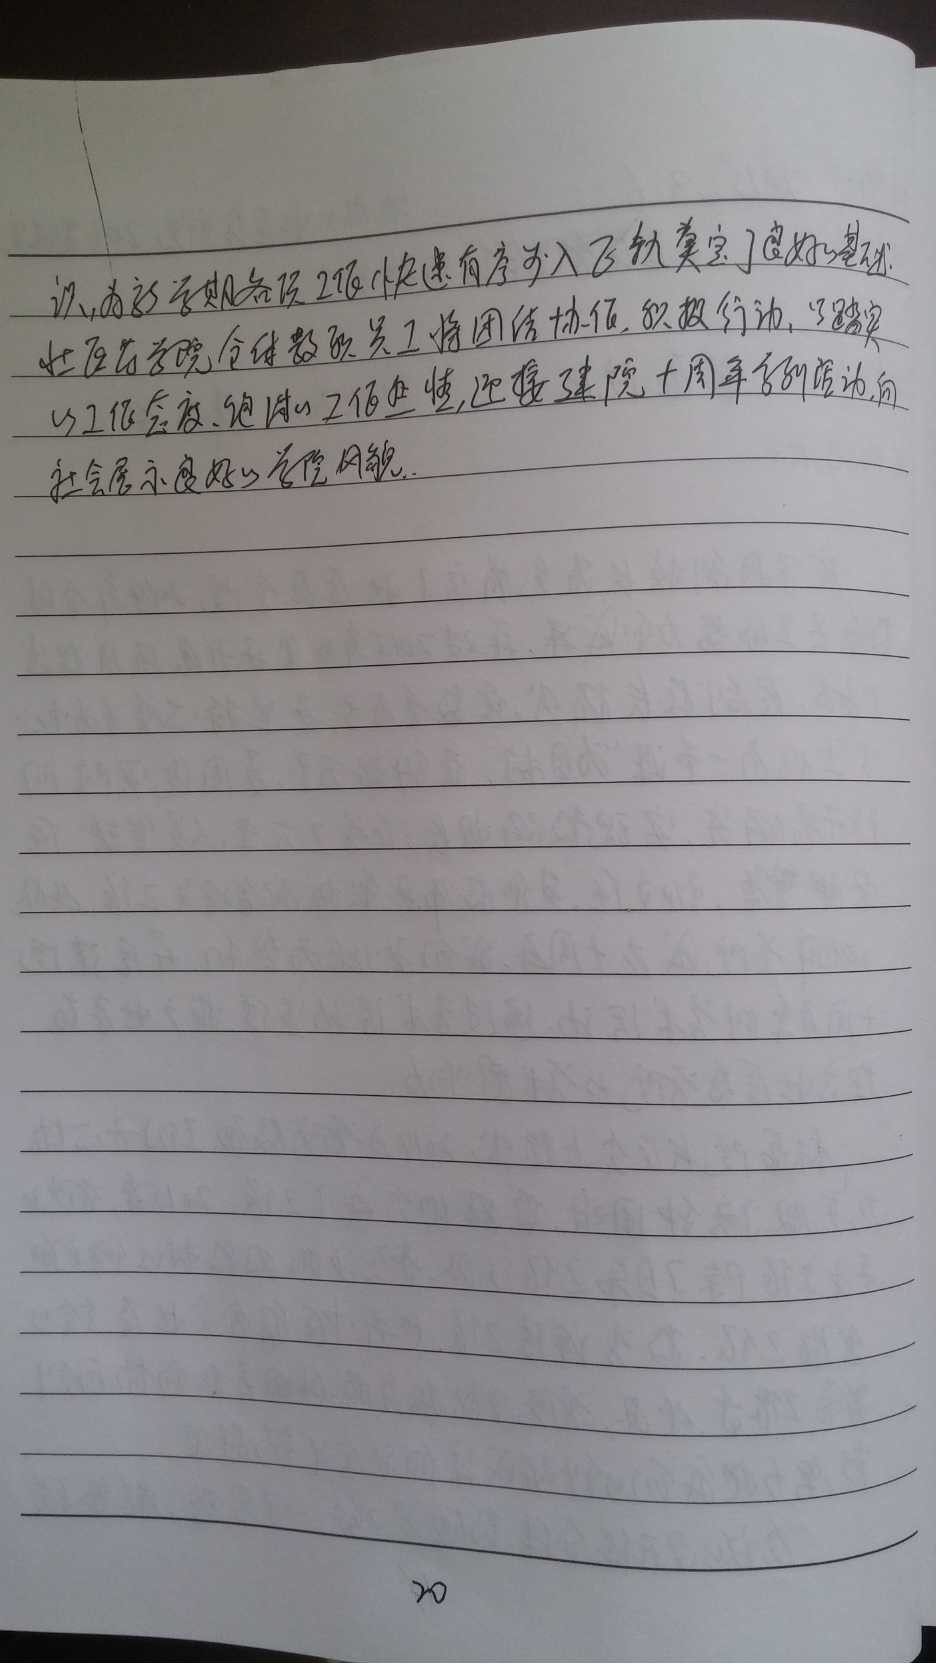 识,为新学期各项工作快速有序步入正轨奠定了良好的基础.
社区与学院全体教职员工将团结协作、积极行动、以踏实
的工作态度、饱满的工作热情,迎接建院十周年系列活动,向
社会展示良好的学院风貌.
20